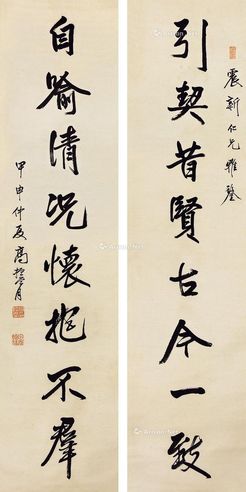 震新仁兄雅鉴
引契昔賢古今一致
自喻清况懷抱不羣
甲申仲夏高振霄